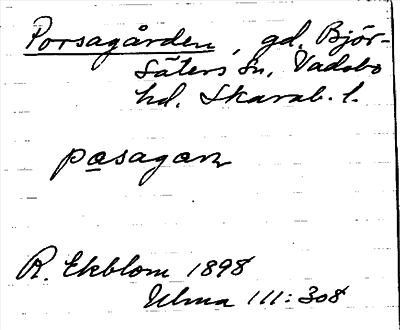 Porsagården, gd, Björ-
säters sn, Vadsbo
hd. Skarab. l.
pasagaɳ
R. Ekblom 1898
Ulma 111:308